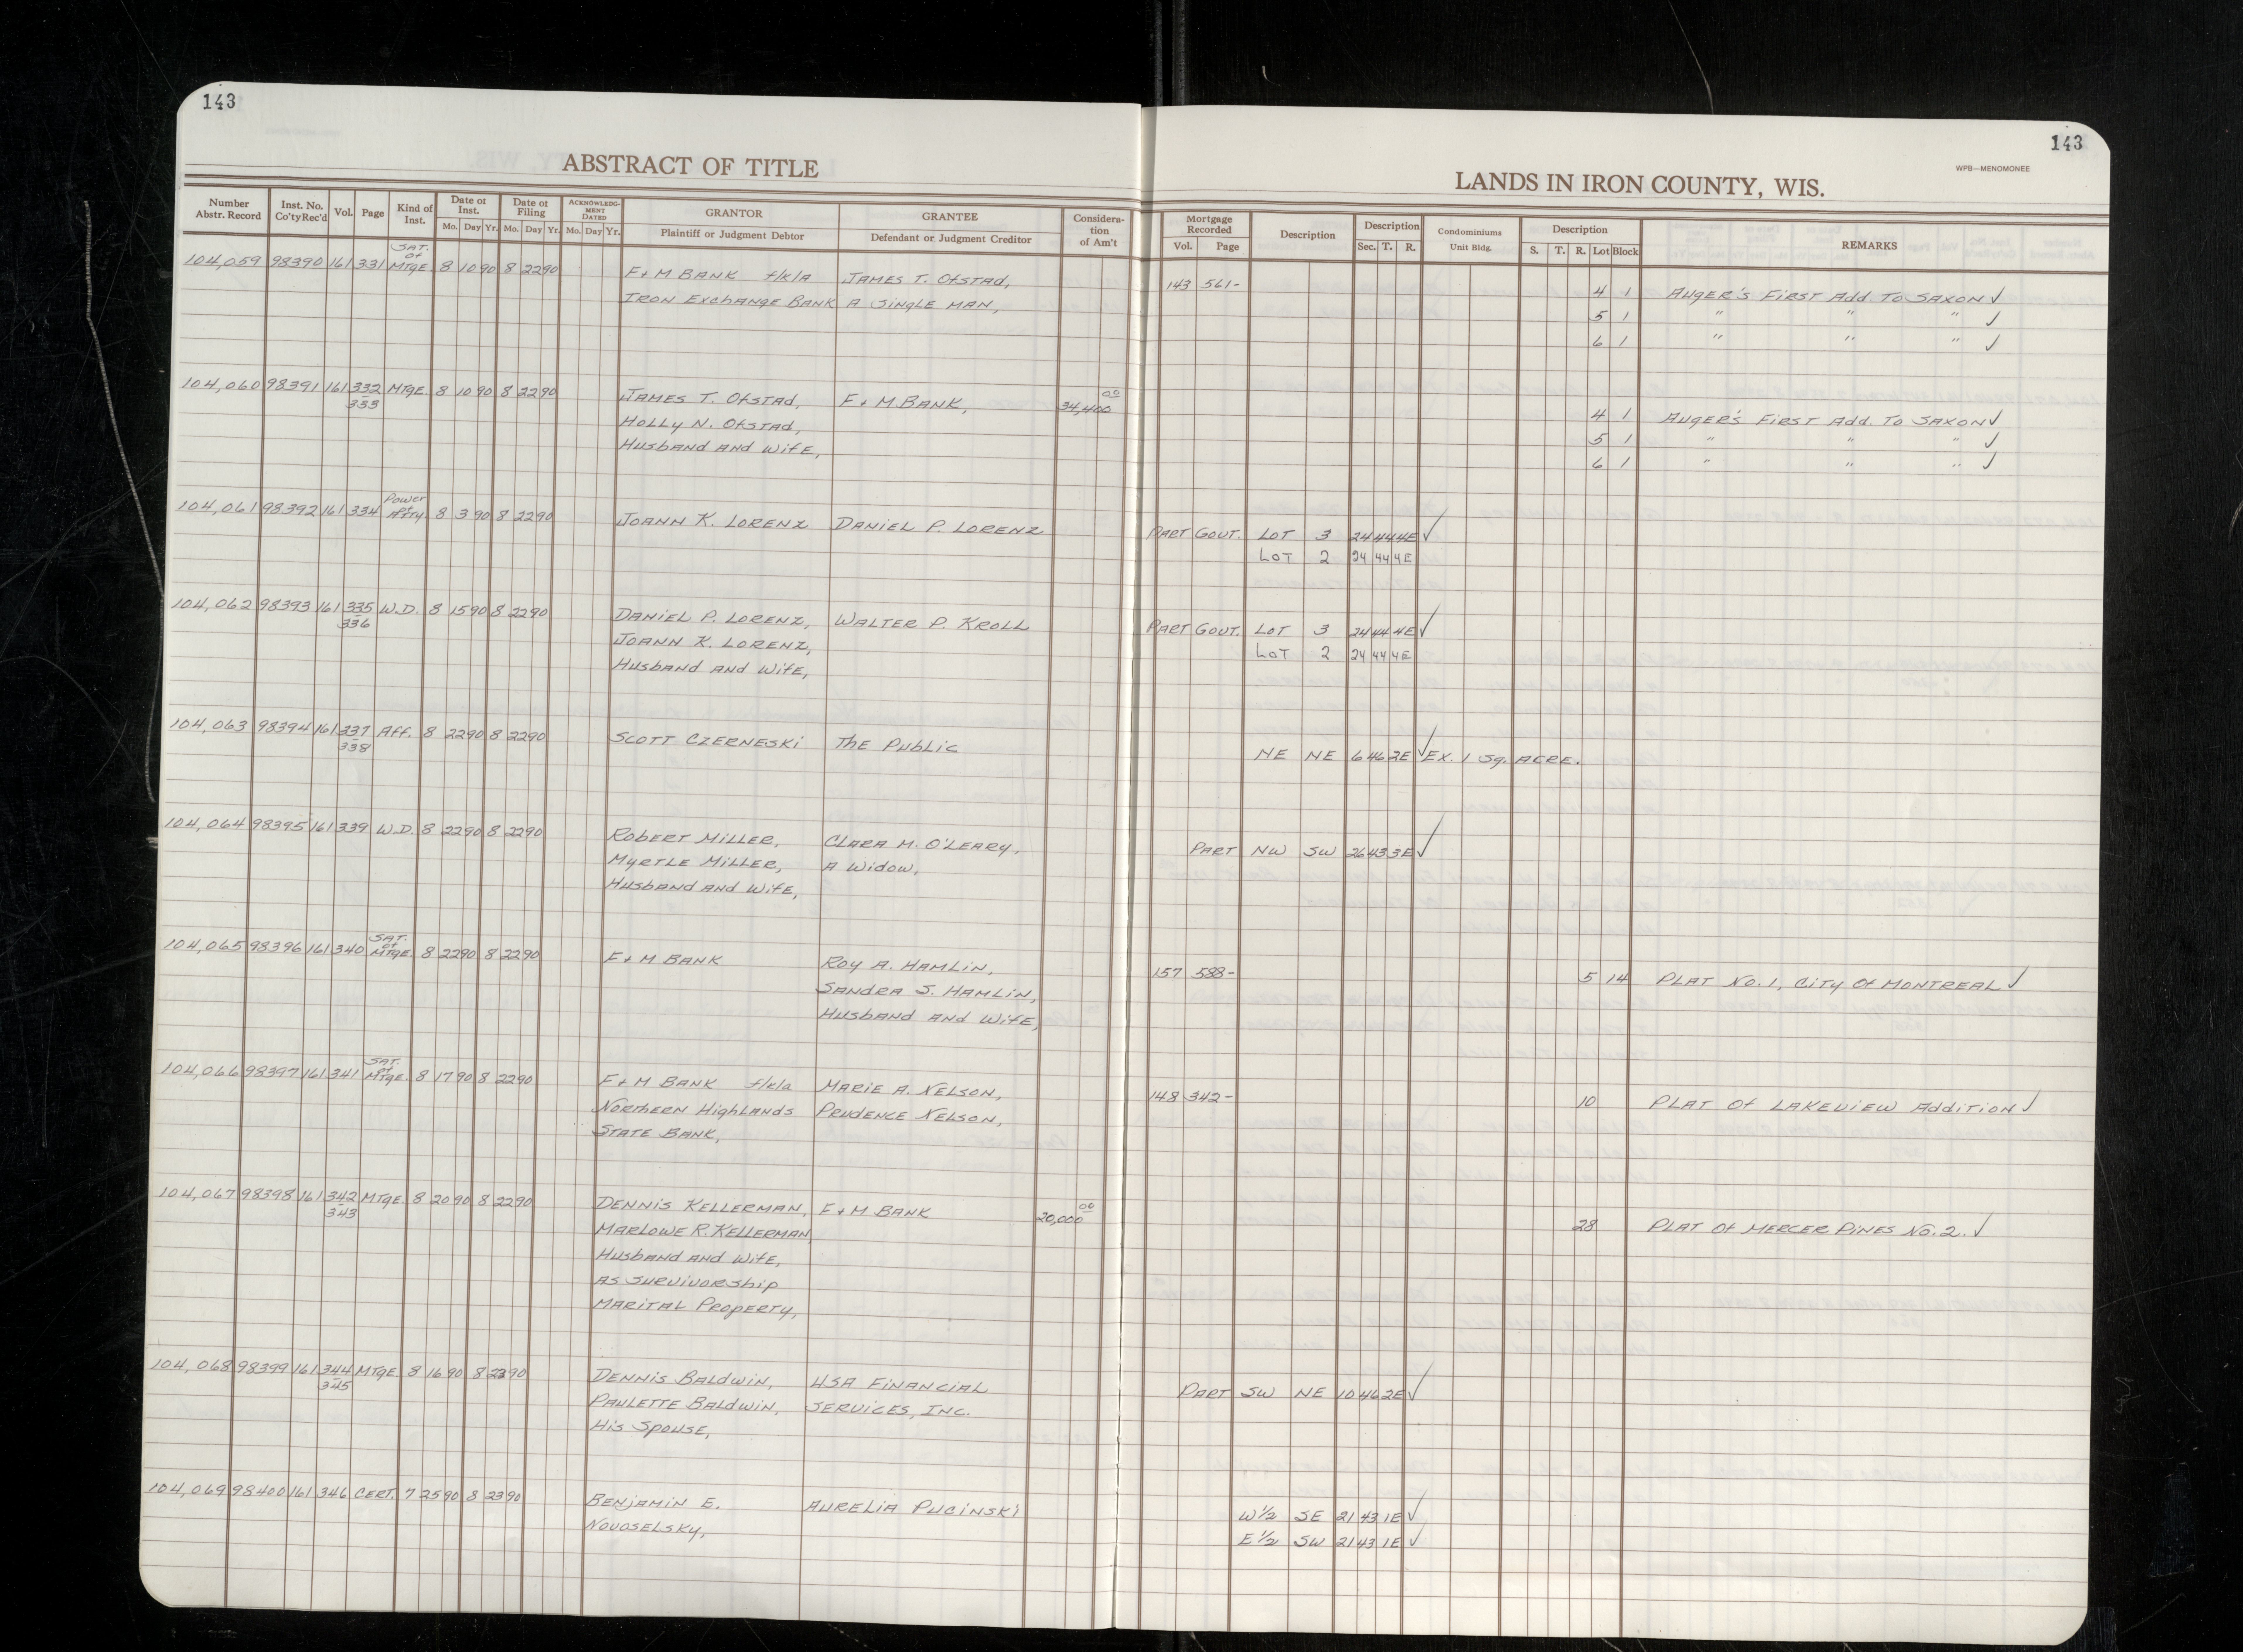 143
143
ABSTRACT OF TITLE
LANDS IN IRON COUNTY, WIS.
WPB—MENOMONEE
Number Abstr. Record | Inst. No. Co'tyRec'd | Vol. | Page | Kind of Inst. | Date of Inst. Mo. Day Yr. | Date of Filing Mo. Day Yr. | ACKNOWLEDG-MENT DATED Mo. Day Yr. | GRANTOR Plaintiff or Judgment Debtor | GRANTEE Defendant or Judgment Creditor | Considera-tion of Am't | Mortgage Recorded Vol. Page | Description | Description Sec. T. R. | Condominiums Unit Bldg. | Description S. T. R. Lot Block | REMARKS
104,059 98390 161 331 SAT. of MTGE. 8 10 90 8 22 90 F+M BANK f/k/a JAMES T. OfSTAD, 143 561- 4 1 AUGER'S FIRST Add. TO SAXON ✓
IRON EXCHANGE BANK A SINGLE MAN, 5 1 " " " ✓
6 1 " " " ✓
104,060 98391 161 332-333 MTGE. 8 10 90 8 22 90 JAMES T. OfSTAD, F+M BANK, 34,400 00 4 1 AUGER'S FIRST Add. TO SAXON ✓
HOLLY N. OfSTAD, 5 1 " " " ✓
HUSBAND AND WIFE, 6 1 " " " ✓
104,061 98392 161 334 Power of ATTY. 8 3 90 8 22 90 JOANN K. LORENZ DANIEL P. LORENZ PART GOVT. LOT 3 24 44 4E ✓
LOT 2 24 44 4E
104,062 98393 161 335-336 W.D. 8 15 90 8 22 90 DANIEL P. LORENZ, WALTER P. KROLL PART GOVT. LOT 3 24 44 4E ✓
JOANN K. LORENZ, LOT 2 24 44 4E
HUSBAND AND WIFE,
104,063 98394 161 337-338 Aff. 8 22 90 8 22 90 SCOTT CZERNESKI The PUBLIC NE NE 6 46 2E ✓ EX. 1 Sq. ACRE.
104,064 98395 161 339 W.D. 8 22 90 8 22 90 ROBERT MILLER, CLARA M. O'LEARY, PART NW SW 26 43 3E ✓
MYRTLE MILLER, A WIDOW,
HUSBAND AND WIFE,
104,065 98396 161 340 SAT. of MTGE. 8 22 90 8 22 90 F+M BANK ROY A. HAMLIN, 157 588- 5 14 PLAT NO. 1, CITY Of MONTREAL ✓
SANDRA J. HAMLIN,
HUSBAND AND WIFE,
104,066 98397 161 341 SAT. of MTGE. 8 17 90 8 22 90 F+M BANK f/k/a MARIE A. NELSON, 148 342- 10 PLAT Of LAKEVIEW AddITION ✓
NORTHERN HIGHLANDS PRUDENCE NELSON,
STATE BANK,
104,067 98398 161 342-343 MTGE. 8 20 90 8 22 90 DENNIS KELLERMAN, F+M BANK 20,000 00 28 PLAT Of MERCER PINES NO. 2. ✓
MARLOWE R. KELLERMAN,
HUSBAND AND WIFE,
AS SURVIVORSHIP
MARITAL PROPERTY,
104,068 98399 161 344-345 MTGE. 8 16 90 8 23 90 DENNIS BALDWIN, USA FINANCIAL PART SW NE 10 46 2E ✓
PAULETTE BALDWIN, SERVICES, INC.
HIS SPOUSE,
104,069 98400 161 346 CERT. 7 25 90 8 23 90 BENJAMIN E. AURELIA PUCINSKI W½ SE 21 43 1E ✓
NOVOSELSKY, E½ SW 21 43 1E ✓